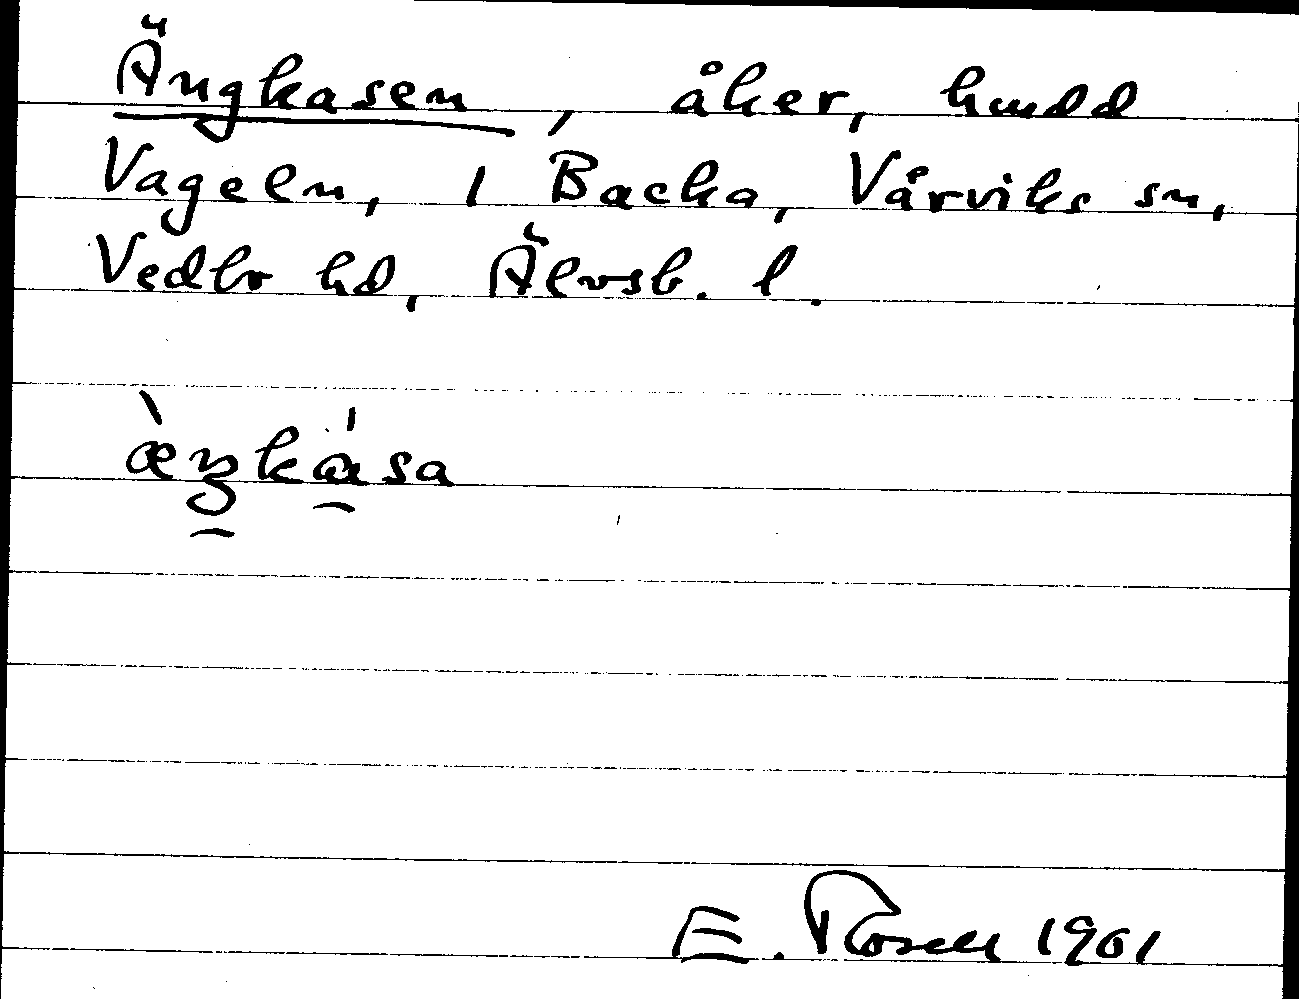 Ängkasen, åker, hmdd
Vageln, 1 Backa, Vårviks sn,
Vedbo hd, Älvsb. l.
æ̀ŋkása
E. Rosell 1961